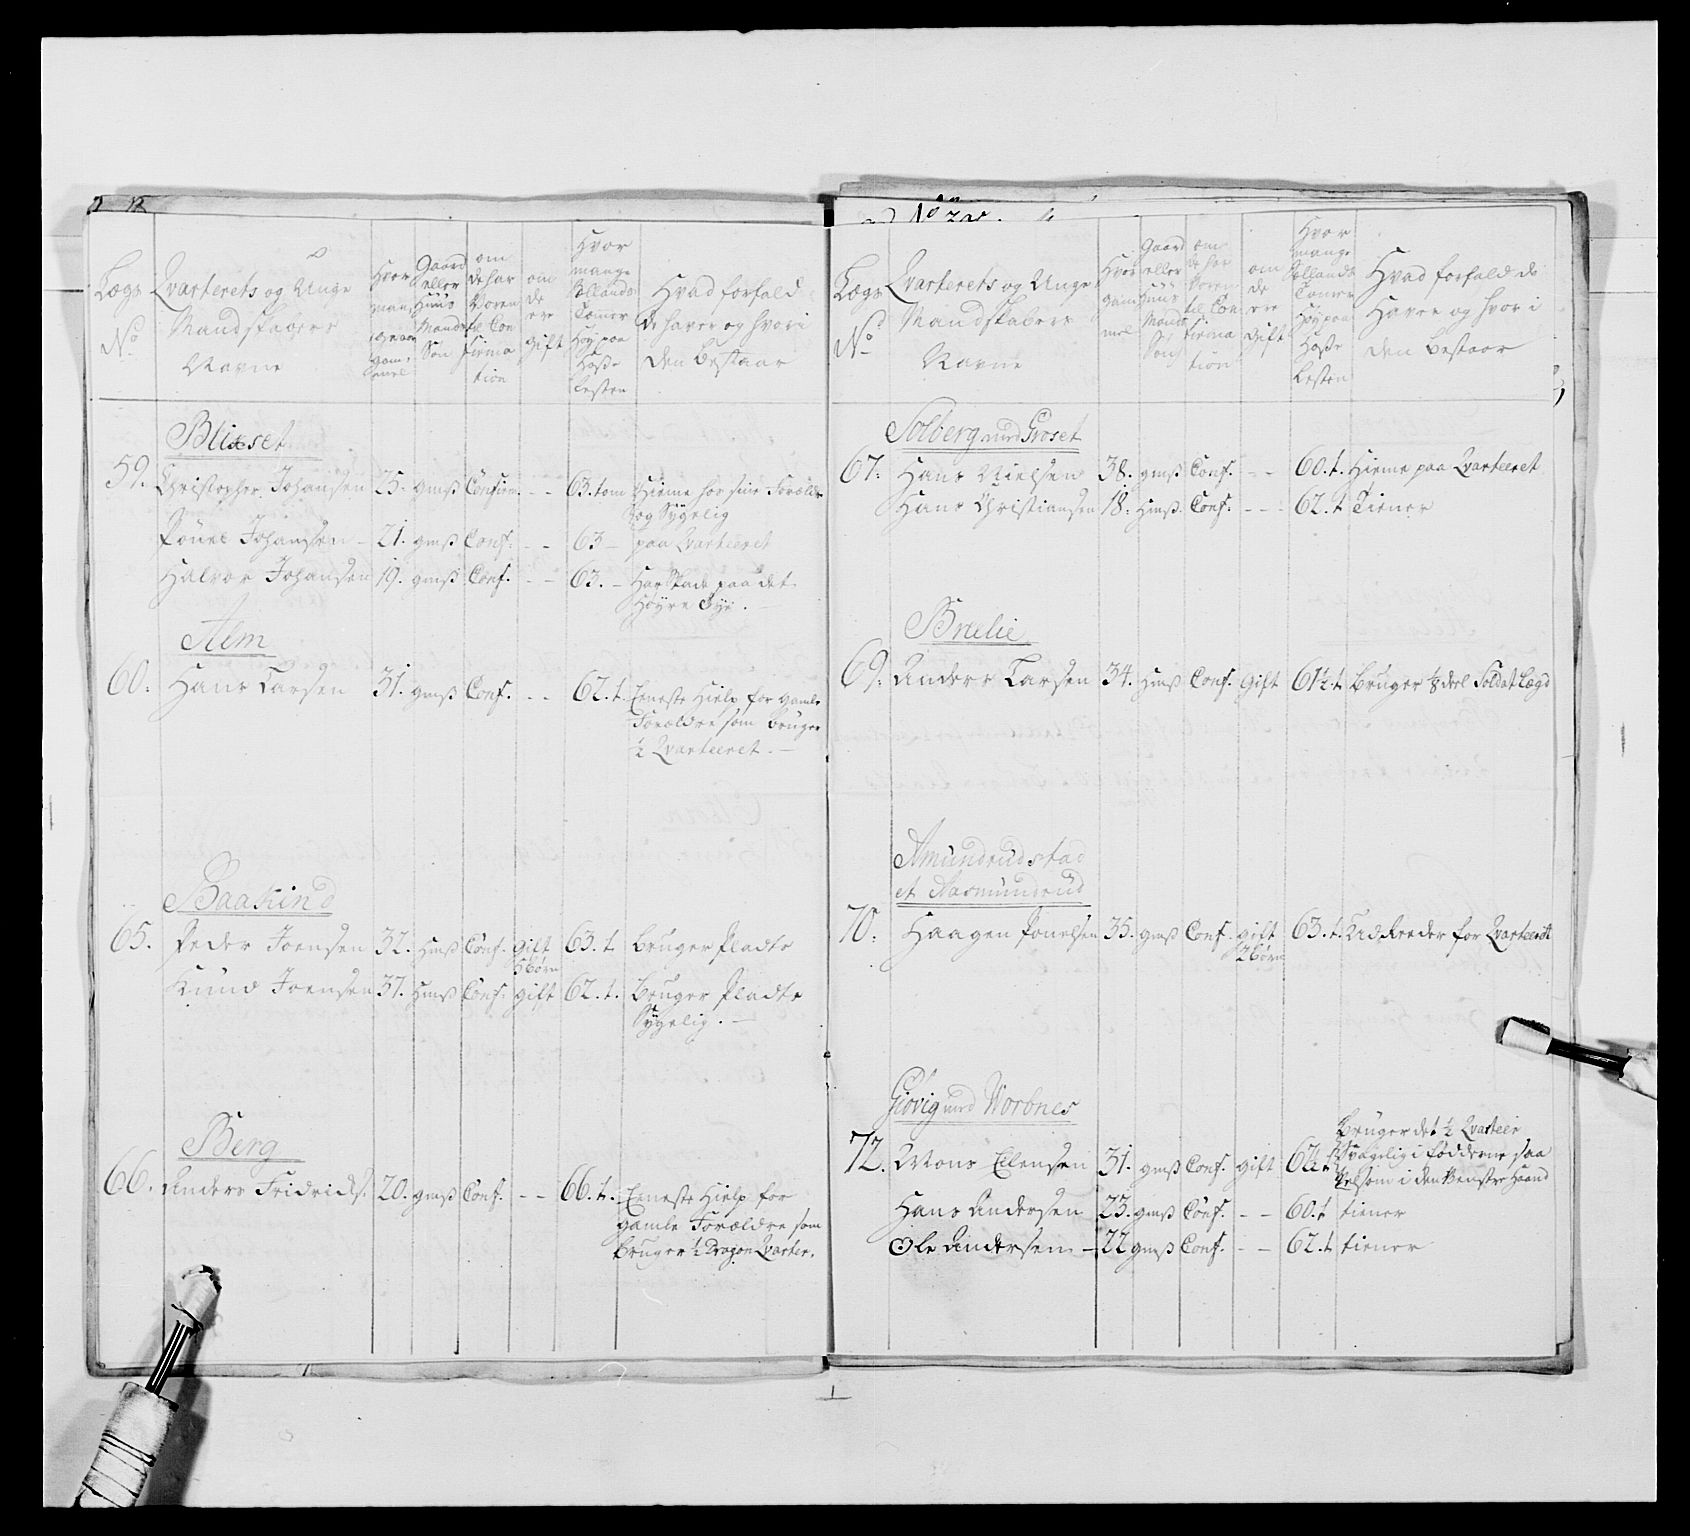 Lægs No
Qvarterets og Unge Mandskabers Navne
Hvor mange aar gammel
Gaard eller Huus Mands Søn
om de har Voren til Confirmation
om de ere gift
Hvor mange Sællands Tomer Høy paa Hosse Lesten
Hvad forfald de haver og hvori den bestaar
Blixset
59. Christopher Johansen 25. gmß Confirm. - - 63. tom Hieme hos sine Forældr
og Sygelig
Pouel Johansen - 21. gmß Conf: - - 63 - paa Qvarteeret
Halvor Johansen 19. gmß Conf. - - 63. - Har Skade paa det
Høyre Øye. -
Alm
60: Hans Larsen 31. gmß Conf. - - 62. t. Eeneste Hielp for gamle
Forældre som bruger
½ Qvarteeret. -
Baakind
65. Peder Joensen 32. Hmß Conf. gift 63. t. Bruger Pladts
5 børn
Knud Joensen 37. Hmß Conf. gift 62. t. Bruger Pladts
Sygelig. -
Berg
66. Anders Fridrichs. 20. gmß Conf. - - 66. t. Eeneste Hielp for
gamle Forældre som
bruger ½ Dragon Qvarter.
Lægs No
Qvarterets og Unge Mandskabers Navne
Hvor gammel
Gaard eller Huus Mands Søn
om de har Voren til Confirmation
om de ere Gift
Hvor mange Sællands Tomer Høy paa Hosse Lesten
Hvad forfald de Haver og hvor i den bestaar
Solberg med Groset
67: Hans Nielsen 38. gmß Conf. - - 60. t. Hieme paa Qvarteeret
Hans Christiansen 18. Hmß. Conf. - - - 62. t Tiener
Brælie
69: Anders Larsen 34. Hmß Conf. Gift 61½ t. Bruger ⅛ deel Soldat Lægd
Amundrudstad
et Aasmundrud
70: Haagen Pouelsen 35. gmß Conf. gift 63. t. Udreeder for Qvarteeret
2 børn
Giøvig medWorbnes
72. Mons Ellensen 31. gmß Conf. gift 62 t. Bruger det ½ Qvarteer
Svagelig i fødderne saa
velsom i den Venstre Haand
Hans Andersen 23. gmß Conf. - - 60. t tiener
Ole Andersen - 22 gmß Conf. - - 62. t tiener